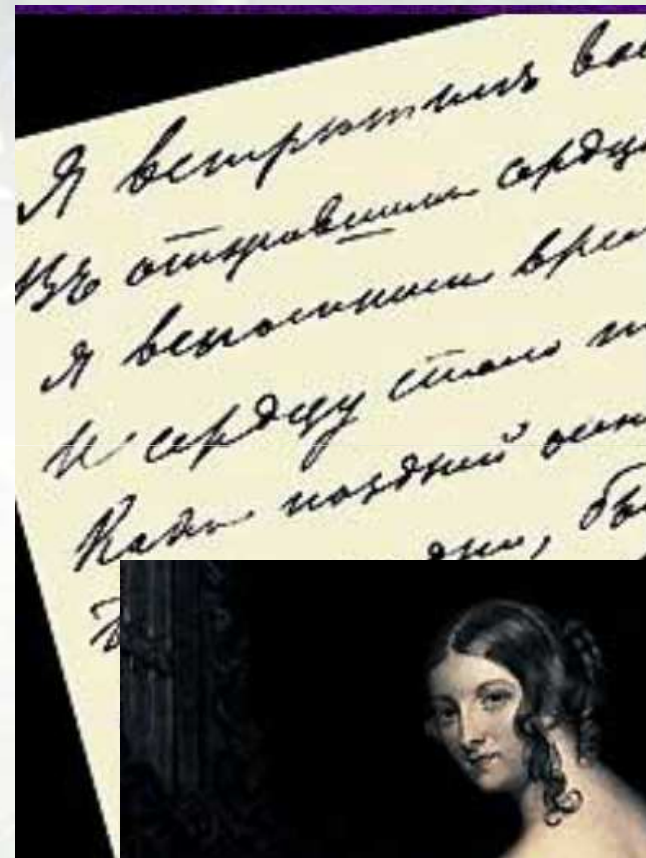 Я встрѣтилъ вас
Въ отжившемъ сердц
Я вспомнилъ врем
И сердцу стало т
Какъ поздней осен
дни, бы